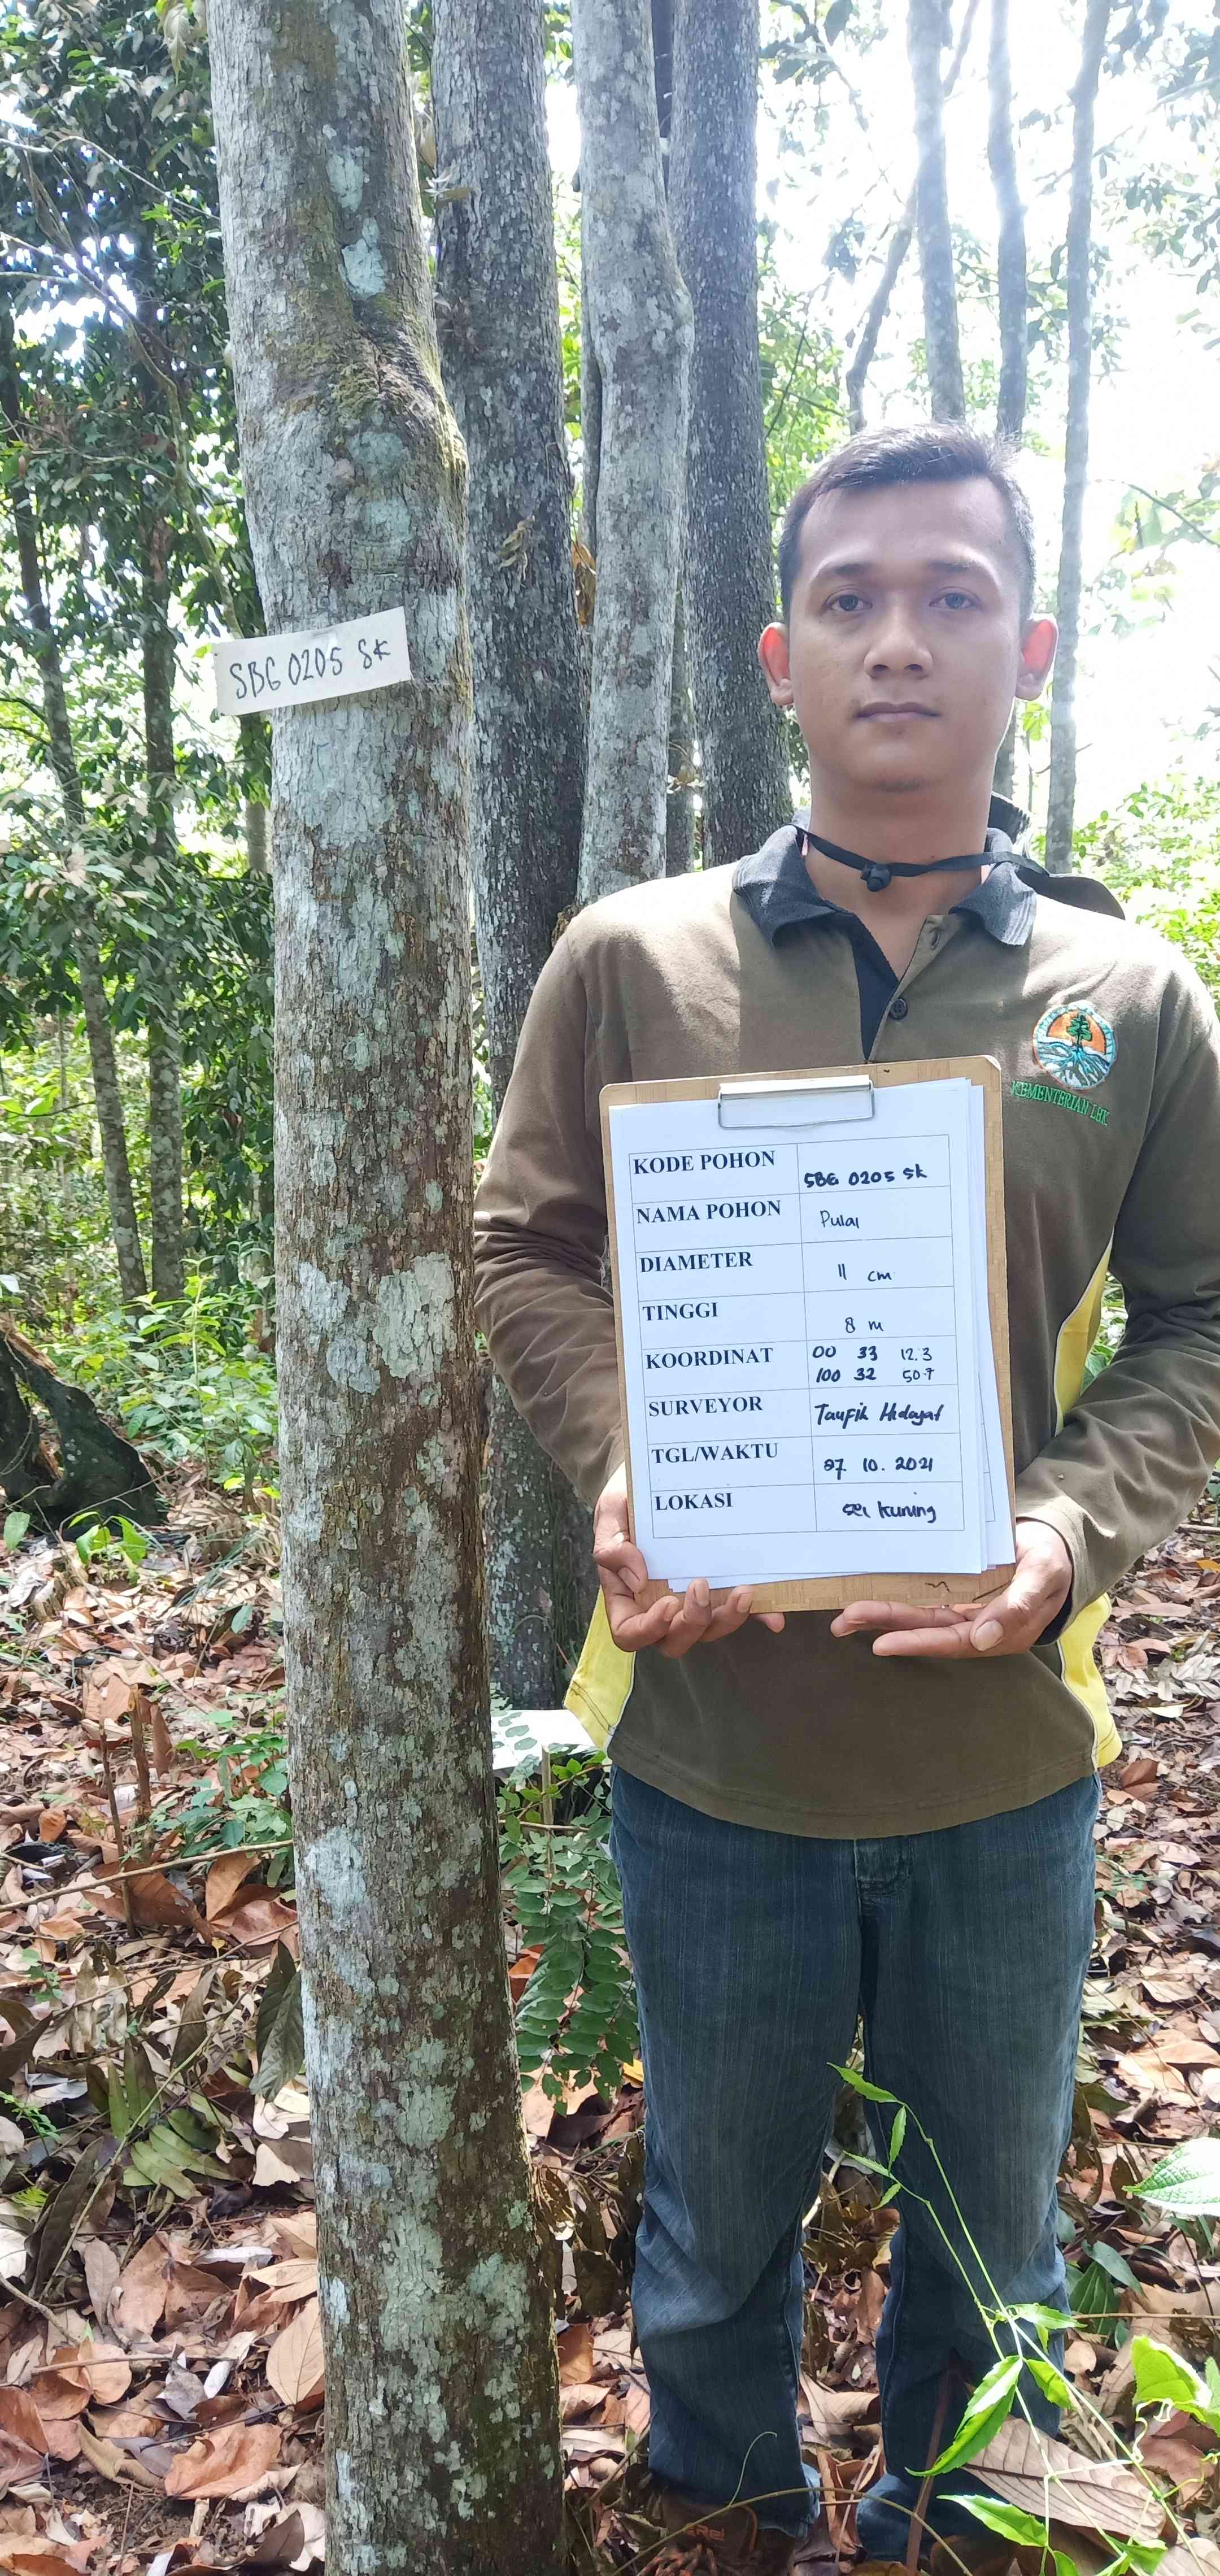 SBG 0205 SK
KEMENTERIAN LHK
KODE POHON SBG 0205 SK
NAMA POHON Pulai
DIAMETER 11 cm
TINGGI 8 m
KOORDINAT 00 33 12.3
100 32 50.7
SURVEYOR Taufik Hidayat
TGL/WAKTU 27 10. 2021
LOKASI Sei kuning